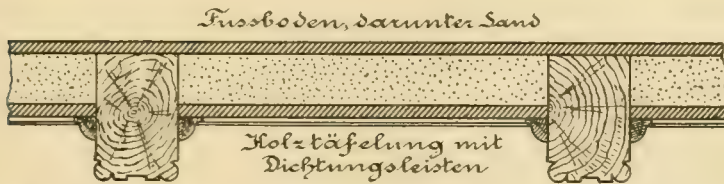 Fussboden, darunter Sand
Holztäfelung mit
Dichtungsleisten